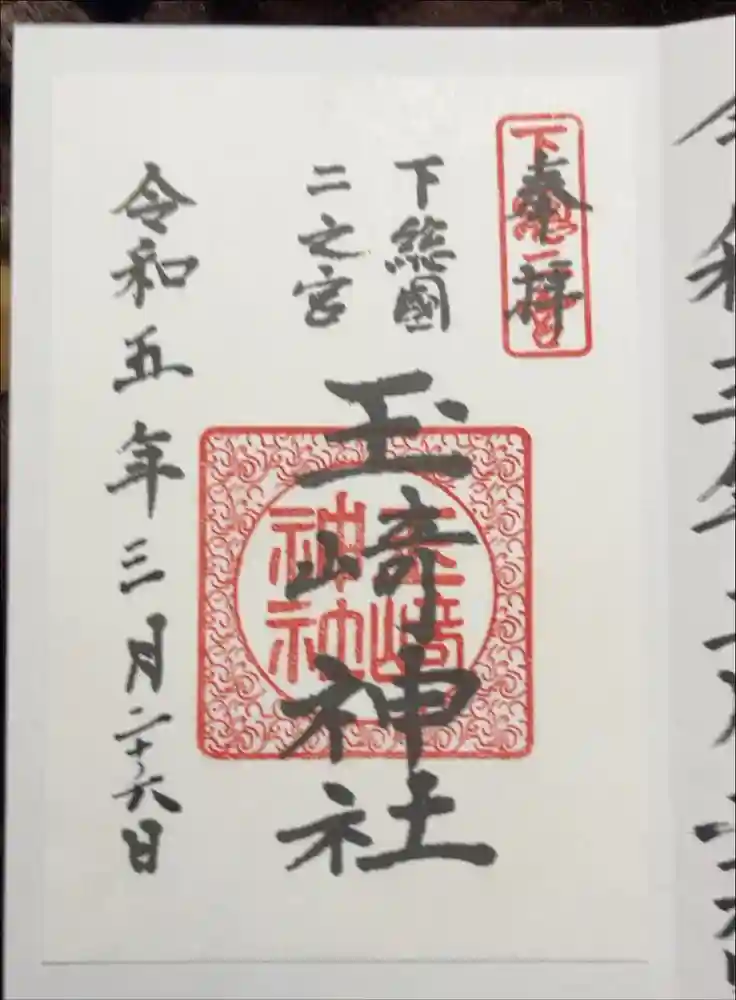 奉拝
下総二之宮
下総國
二之宮
玉﨑神社
玉﨑神社
令和五年三月二十六日